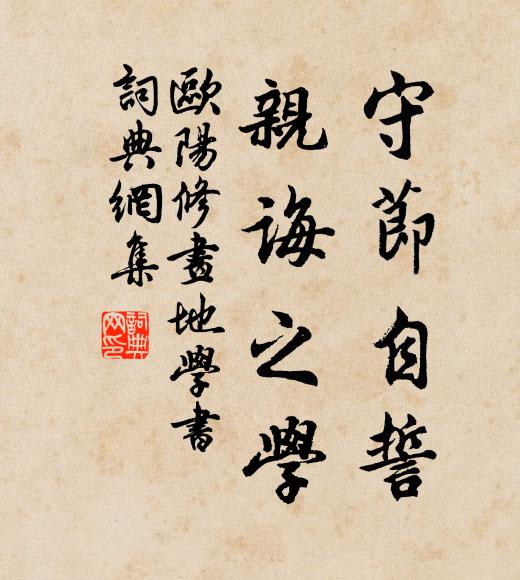 守節自誓
親誨之學
歐陽修畫地學書
詞典網集
詞典